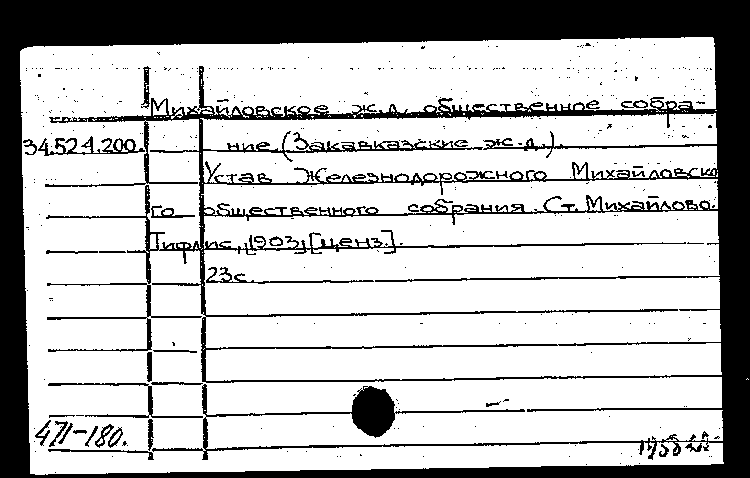 Михайловское ж.д. общественное собра-
34.524.200. ние (Закавказские ж.д.).
Устав Железнодорожного Михайловско
го общественного собрания. Ст. Михайлово.
Тифлис, 1903, [ценз.].
23с.
471-180.